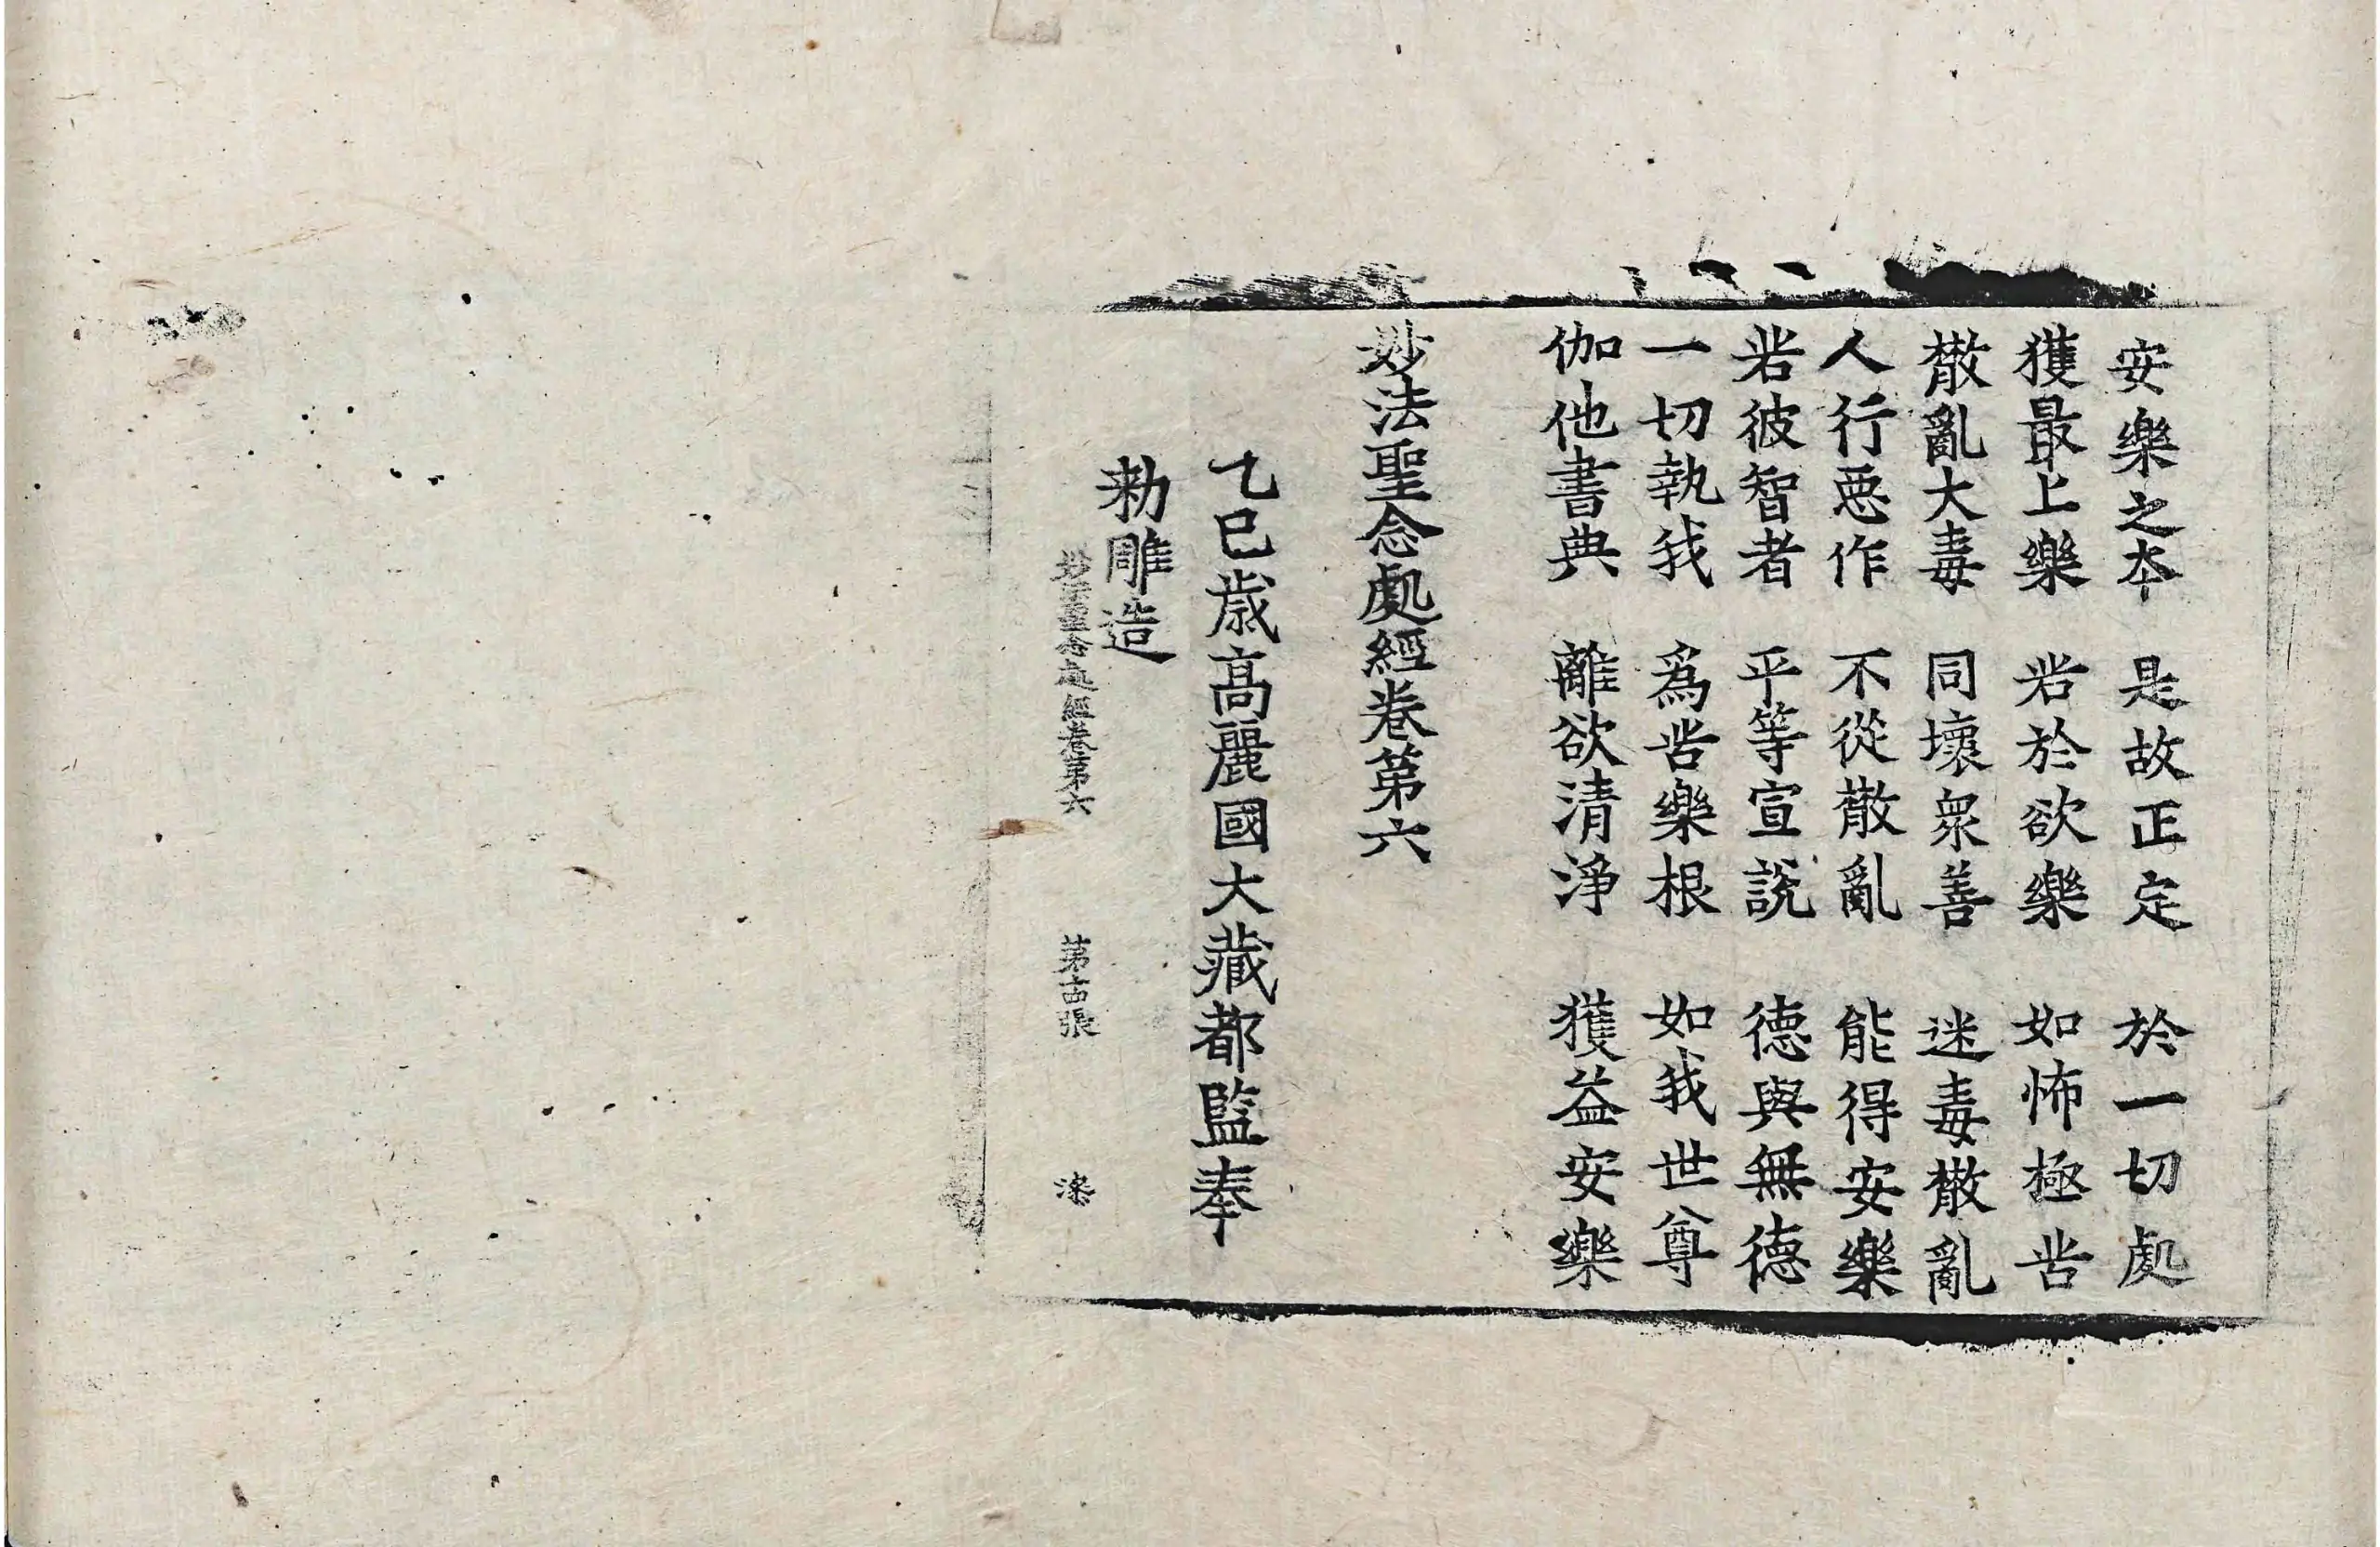 安樂之本　是故正定　於一切處
獲最上樂　若於欲樂　如怖極苦
散亂大毒　同壞衆善　迷毒散亂
人行惡作　不從散亂　能得安樂
若彼智者　平等宣說　德與無德
一切執我　爲苦樂根　如我世尊
伽他書典　離欲清淨　獲益安樂
妙法聖念處經卷第六
乙巳歲高麗國大藏都監奉
勅雕造
妙法聖念處經卷第六　第十四張　漆